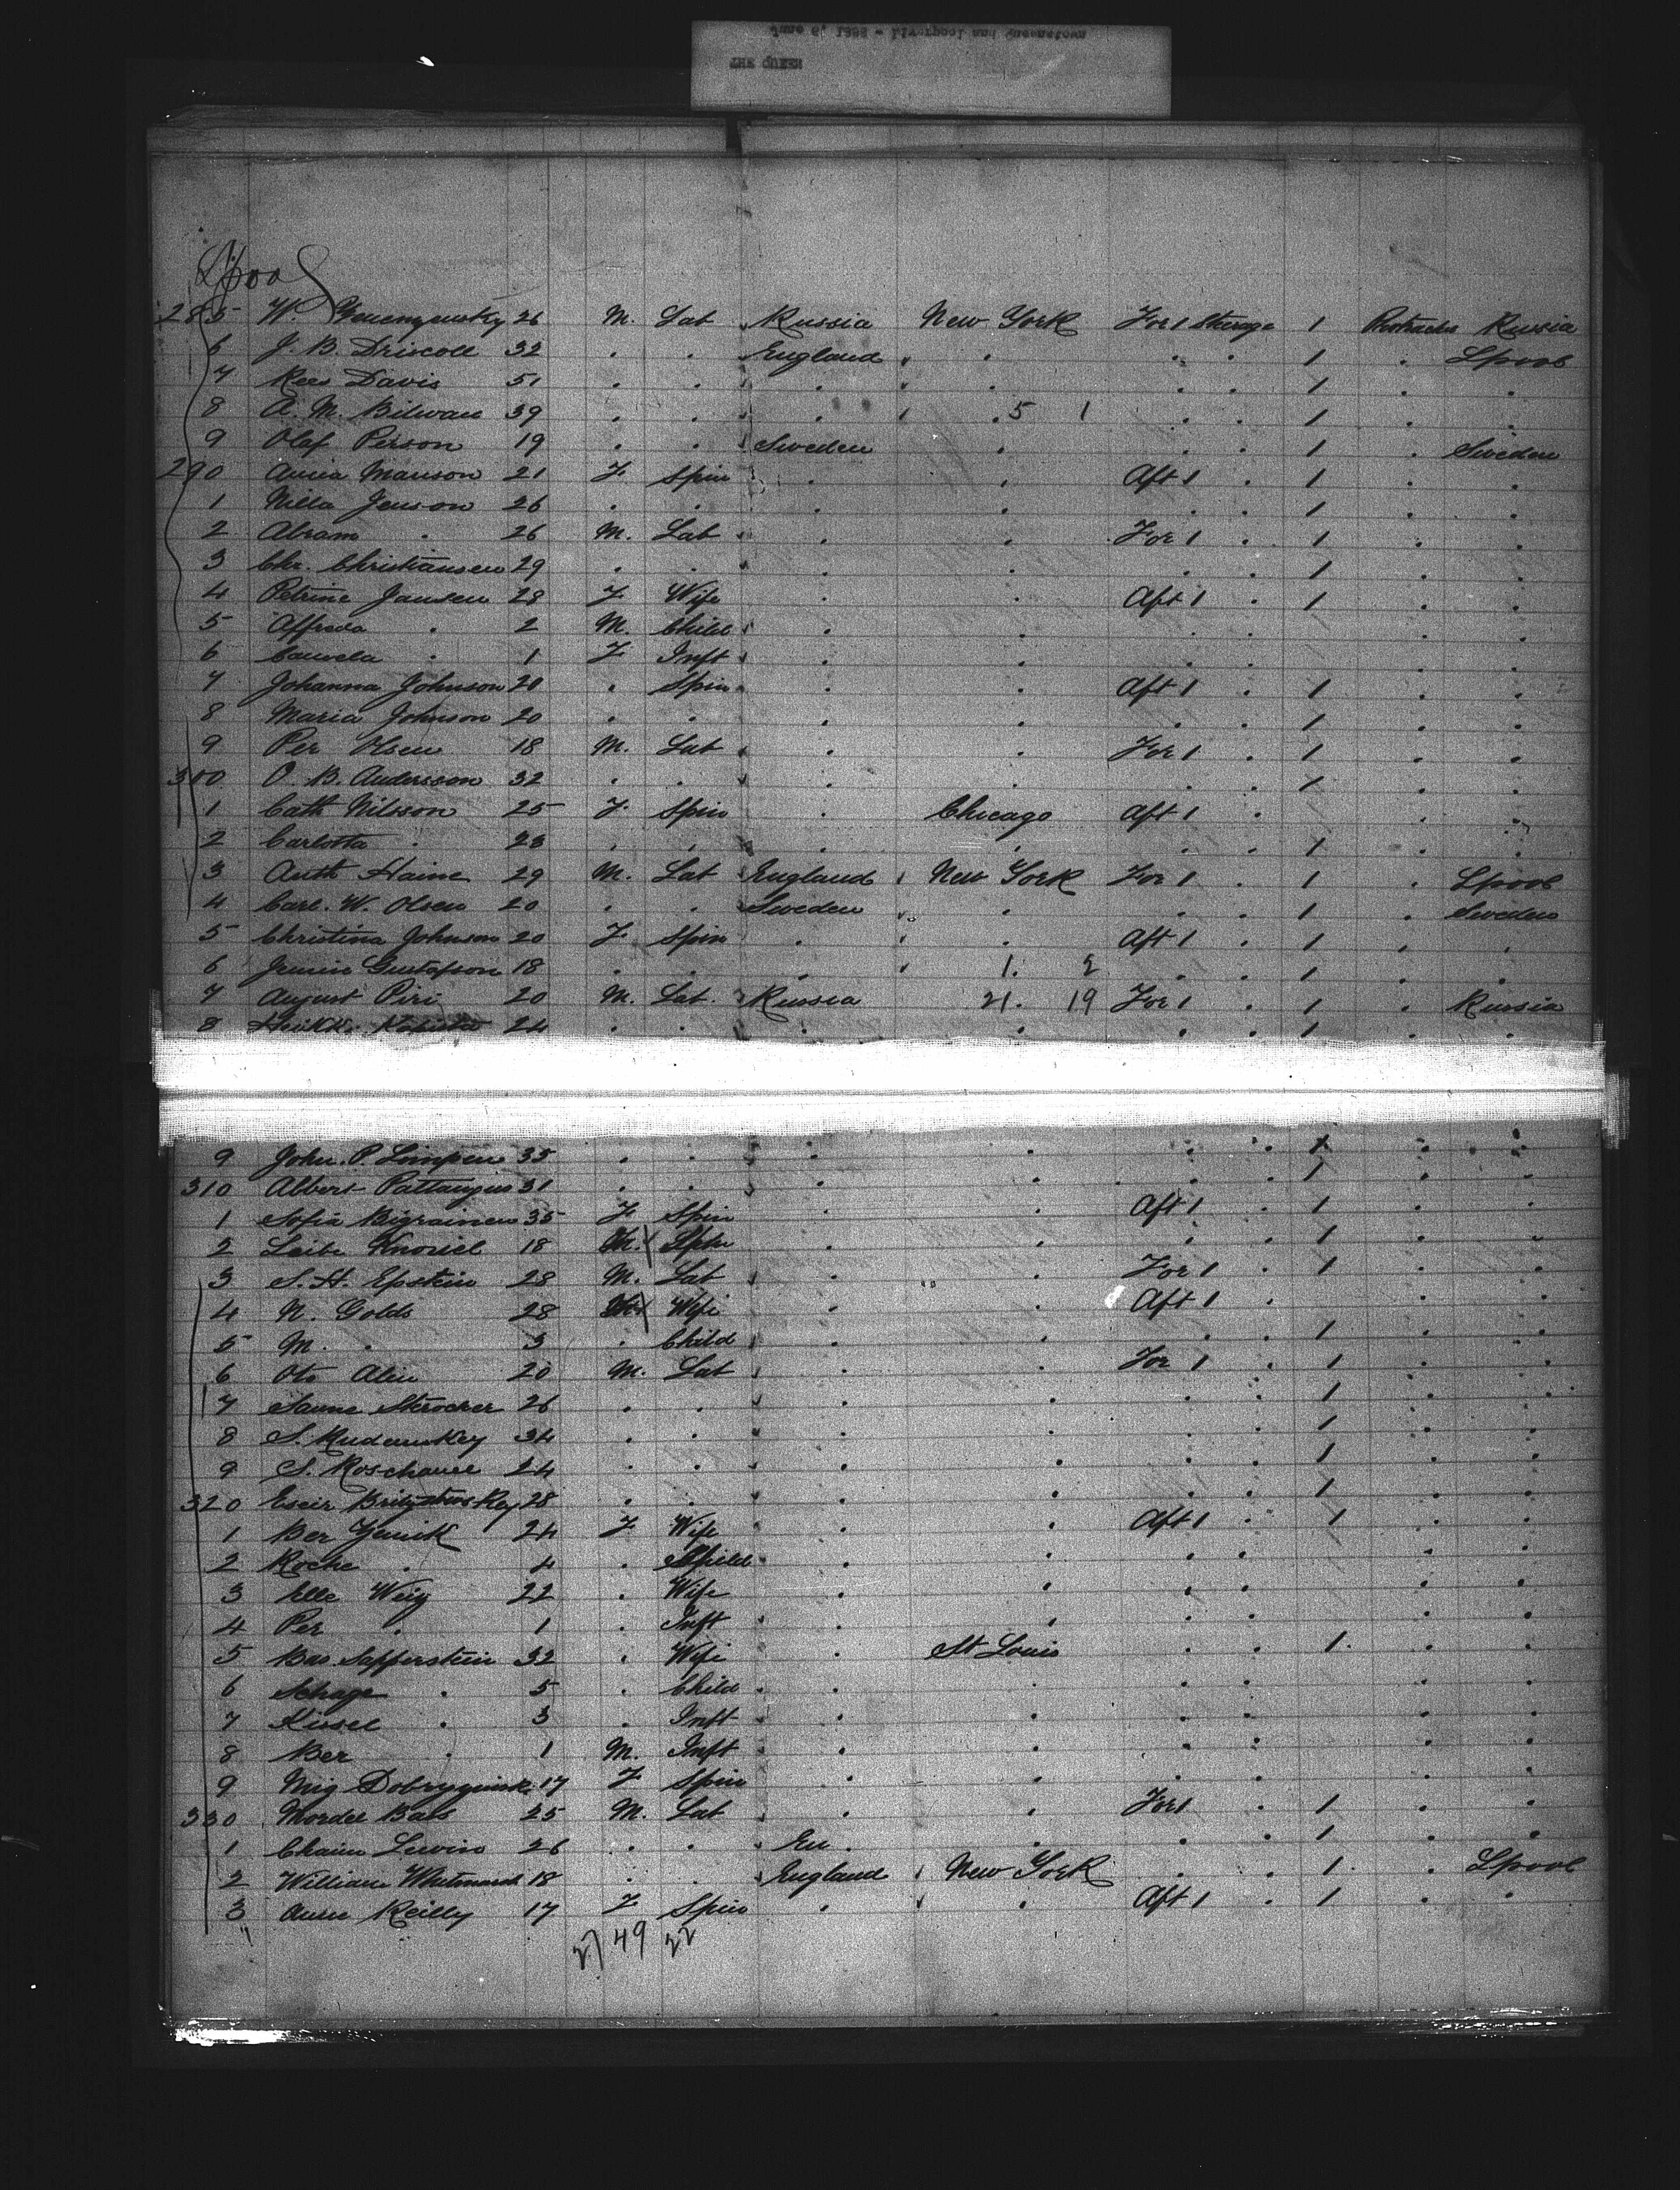 June 6, 1892 - Liverpool and Queenstown
THE QUEEN
Lpool
285 W. 26 M. Lab Russia New York For 1 Sterage 1 Protracted Russia
6 J. B. Driscoll 32 . . England . . . . 1 . Lpool
7 Rees Davis 51 . . . . . . . 1 . .
8 A. M. 39 . . . . 5 1 . . 1 . .
9 Olaf Person 19 . . Sweden . . . 1 . Sweden
290 Anna Manson 21 F Spin . . Aft 1 . 1 . .
1 Nilla Jenson 26 . . . . . . 1 . .
2 Abram . 26 M. Lab . . For 1 . 1 . .
3 Chr. Christiansen 29 . . . . . . 1 . .
4 Petrine Jansen 28 F Wife . . Aft 1 . 1 . .
5 Alfreda . 2 M. Child . . . . . .
6 . 1 F Inft . . . . . .
7 Johanna Johnson 20 . Spin . . Aft 1 . 1 . .
8 Maria Johnson 20 . . . . . . 1 . .
9 Per Olsen 18 M. Lab . . For 1 . 1 . .
300 O. B. Andersson 32 . . . . . . 1 . .
1 Cath Nilsson 25 F Spin . Chicago Aft 1 . . .
2 Carlotta . 28 . . . . . . 1 . .
3 Anth Haine 29 M. Lab England New York For 1 . 1 . Lpool
4 Carl. W. Olsen 20 . . Sweden . . . 1 . Sweden
5 Christina Johnson 20 F Spin . . Aft 1 . 1 . .
6 Gustafson 18 . . . 1. 2 . . 1 . .
7 August Piri 20 M. Lab. Russia 21. 19 For 1 . 1 . Russia
8 24 . . . . . . 1 . .
9 John. P. 35 . . . . . . 1 . .
310 Albert 31 . . . . . . 1 . .
1 Sofia 35 F Spin . . Aft 1 . 1 . .
2 Leibe 18 M. Spin . . . . 1 . .
3 S. H. Epstein 28 M. Lab . . For 1 . 1 . .
4 N. Golds 28 Wife . . Aft 1 . . .
5 M. . 3 . Child . . . . 1 . .
6 Oto Alin 20 M. Lab . . For 1 . 1 . .
7 26 . . . . . . 1 . .
8 S. 34 . . . . . . 1 . .
9 S. 24 . . . . . . 1 . .
320 28 . . . . . . 1 . .
1 Ber 24 F Wife . . Aft 1 . 1 . .
2 Roche . 4 . Child . . . . . .
3 Elle Weig 22 . Wife . . . . . .
4 Per . 1 . Inft . . . . . .
5 Bas. Safferstein 32 . Wife . St Louis . . 1 . .
6 Schage . 5 . Child . . . . . .
7 Kissel . 3 . Inft . . . . . .
8 Ber . 1 M. Inft . . . . . .
9 Mig 17 F Spin . . . . . .
330 Mordel 25 M. Lab . . For 1 . 1 . .
1 Chaim 26 . . Eu . . . . 1 . .
2 William 18 . . England New York . . 1 . Lpool
3 Anne Reilly 17 F Spin . . Aft 1 . 1 . .
27 49 22